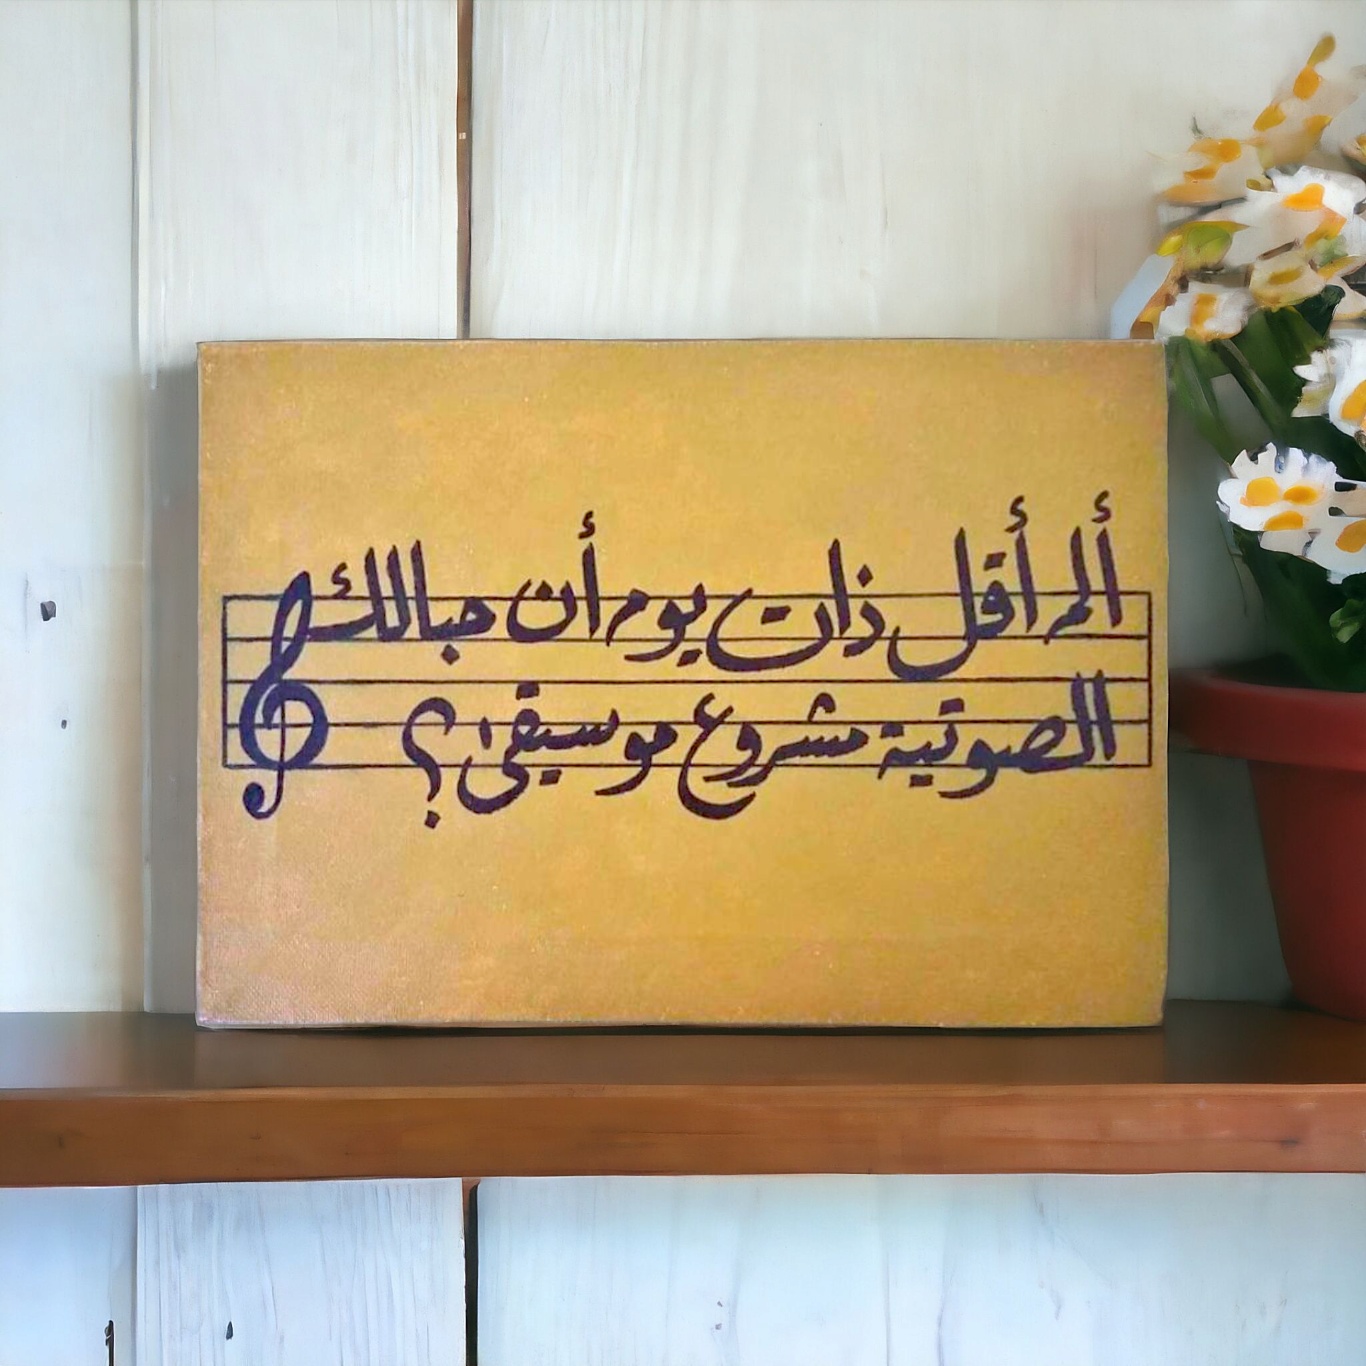 ألم أقل ذات يوم أن حبالك
الصوتية مشروع موسيقى؟